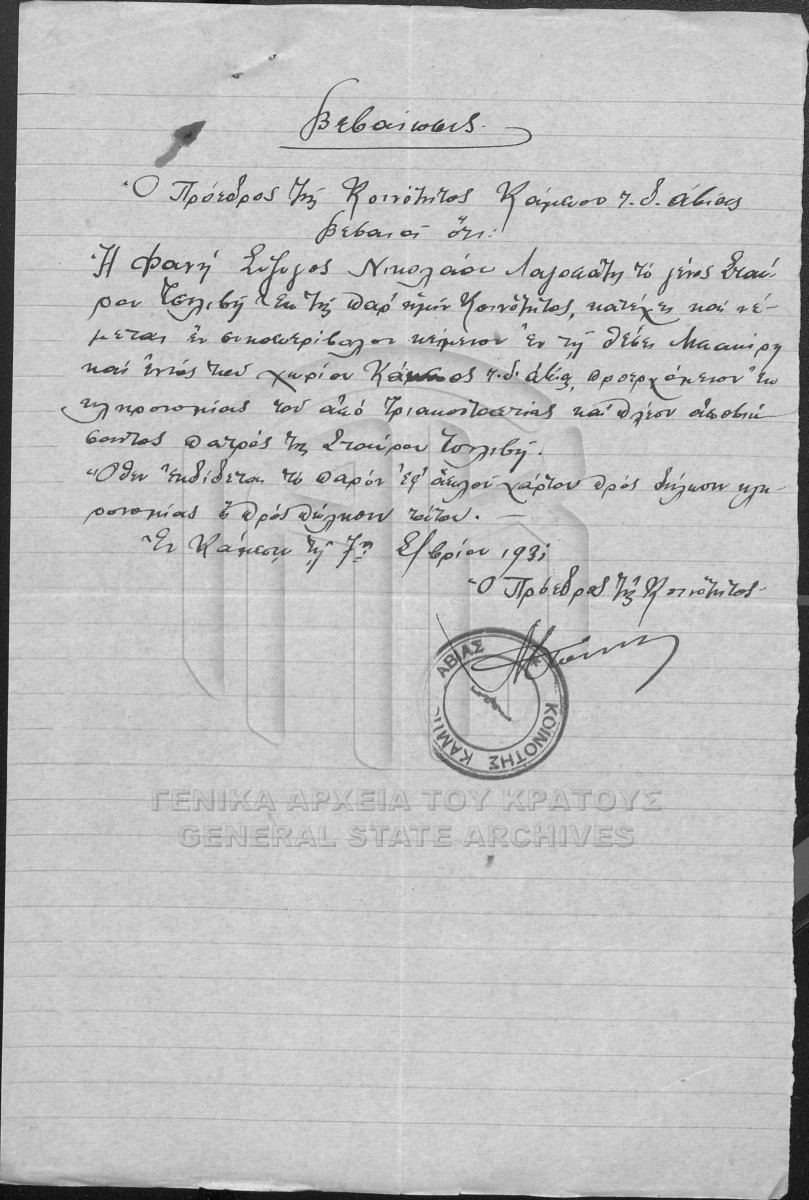 Βεβαίωσις.
Ὁ Πρόεδρος τῆς Κοινότητος Κάμπου τ. δ. Ἀβίας
βεβαιοῖ ὅτι:
Ἡ Φανή Σύζυγος Νικολάου τό γένος Σταύ-
ρου Τσιλιβῆ ἐκ τῆς παρ' ἡμῖν Κοινότητος, κατέχει καί νέ-
μεται ἓν συκοπερίβολον κείμενον ἐν τῇ θέσει
καί ἐντός τοῦ χωρίου Κάμπος τ. δ. Ἀβίας, προερχόμενον ἐκ
κληρονομίας τοῦ ἀπό τριακονταετίας καί πλέον ἀποβιώ
σαντος πατρός της Σταύρου Τσιλιβῆ.
Ὅθεν ἐκδίδεται τό παρόν ἐφ' ἁπλοῦ χάρτου πρός δήλωσιν κλη-
ρονομίας ἢ πρός πώλησιν τούτου.
Ἐν Κάμπῳ τῇ 7ῃ 193
Ὁ Πρόεδρος τῆς Κοινότητος
ΚΟΙΝΟΤΗΣ ΚΑΜΠ ΑΒΙΑΣ
ΓΕΝΙΚΑ ΑΡΧΕΙΑ ΤΟΥ ΚΡΑΤΟΥΣ
GENERAL STATE ARCHIVES